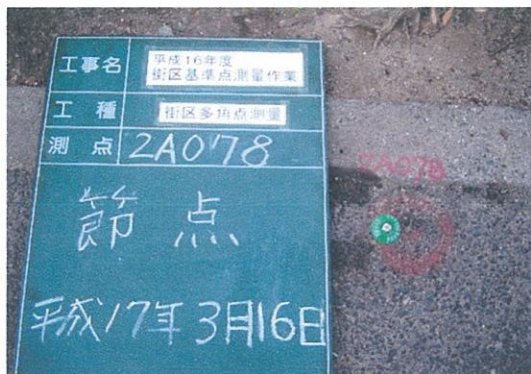 工事名
平成16年度
街区基準点測量作業
工種
街区多角点測量
測点
2A078
節点
平成17年3月16日
2A078